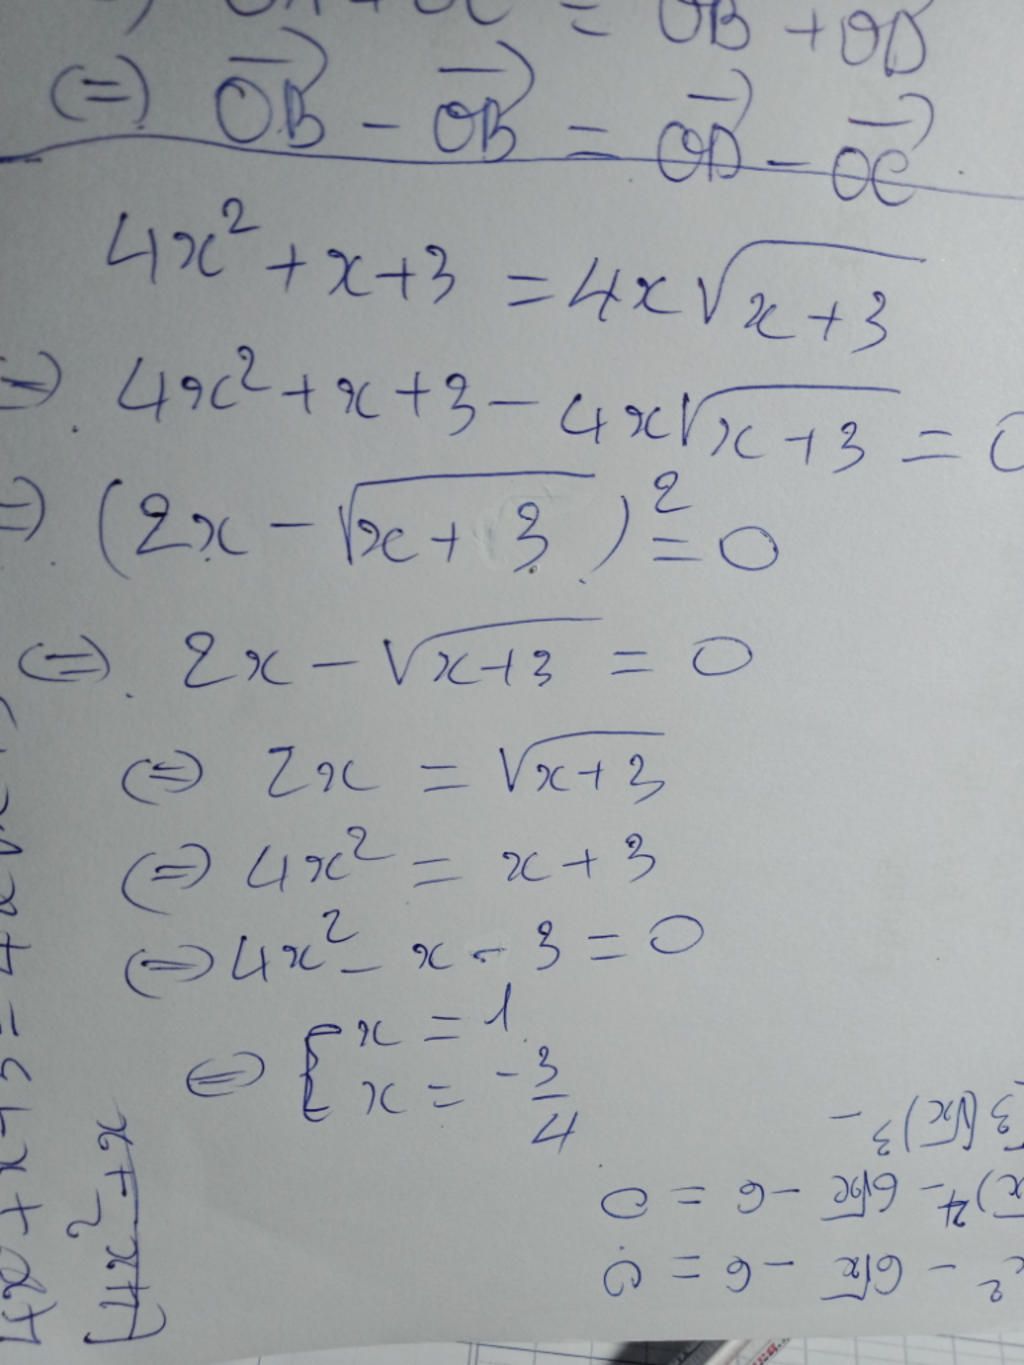 = OB + OD
(=) OB - OB = OD - OC
4x² + x + 3 = 4x√x+3
=) 4x² + x + 3 - 4x√x+3 = 0
=) (2x - √x+3)² = 0
(=) 2x - √x+3 = 0
(=) 2x = √x+3
(=) 4x² = x + 3
(=) 4x² - x - 3 = 0
(=) [ x = 1
x = -3/4
4x² + x
- 6√x - 6 = 0
x² - 6√x - 6 = 0